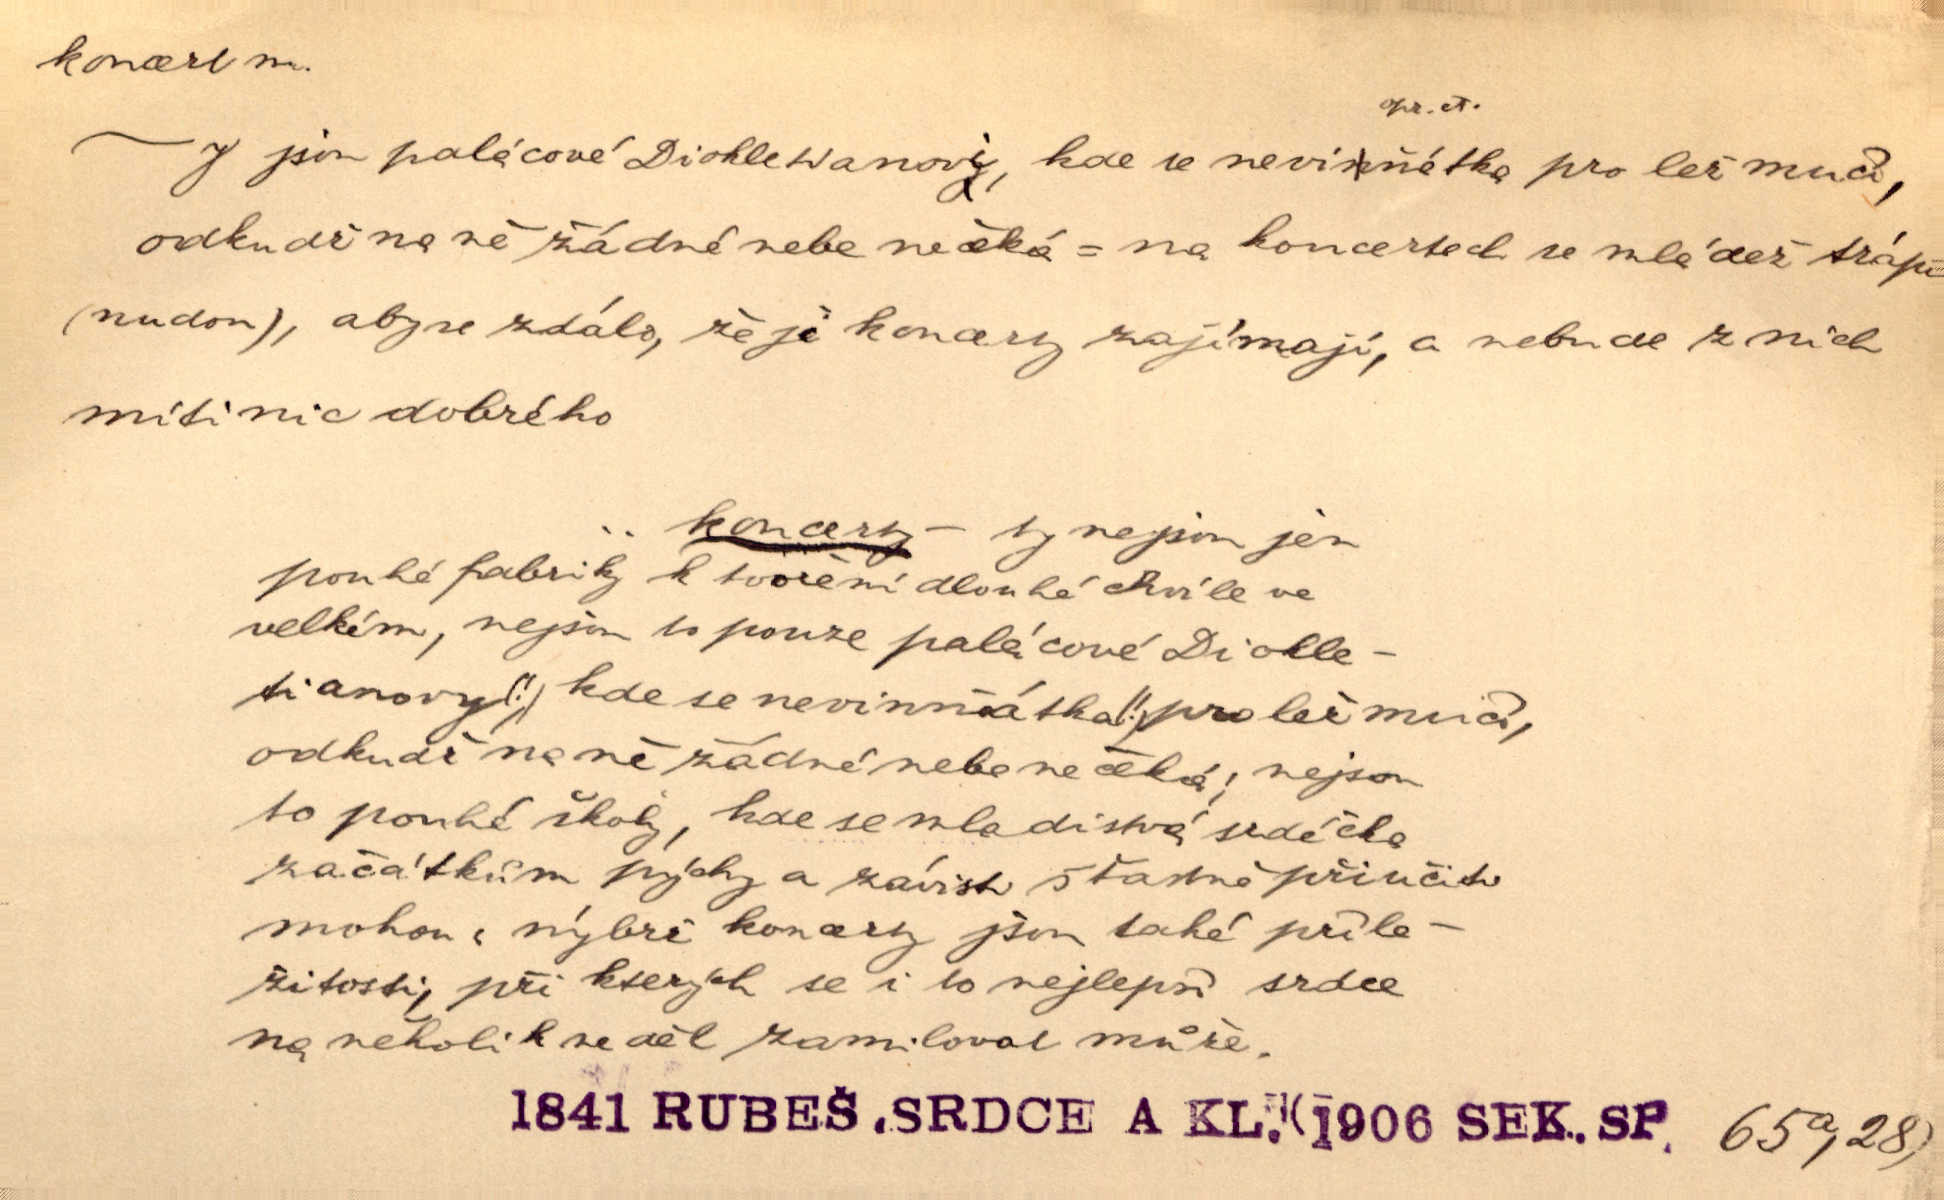 koncert m.
opr. et.
~y jsou palácové Diokletianovy, kde se neviňátka pro lež mučí,
odkudž na ně žádné nebe nečeká = na koncertech se mládež trápí
(nudou), aby se zdálo, že ji koncerty zajímají, a nebude z nich
míti nic dobrého
.. koncerty – ty nejsou jen
pouhé fabriky k tvoření dlouhé chvíle ve
velkém, nejsou to pouze palácové Diokle-
tianovy(!), kde se neviňátka(!) pro lež mučí,
odkudž na ně žádné nebe nečeká; nejsou
to pouhé školy, kde se mladistvá srdéčka
začátkům pýchy a závisti šťastně přiučiti
mohou: nýbrž koncerty jsou také příle-
žitosti, při kterých se i to nejlepší srdce
na několik neděl zamilovat může.
1841 RUBEŠ. SRDCE A KL. (1906 SEK. SP. 65a, 28)